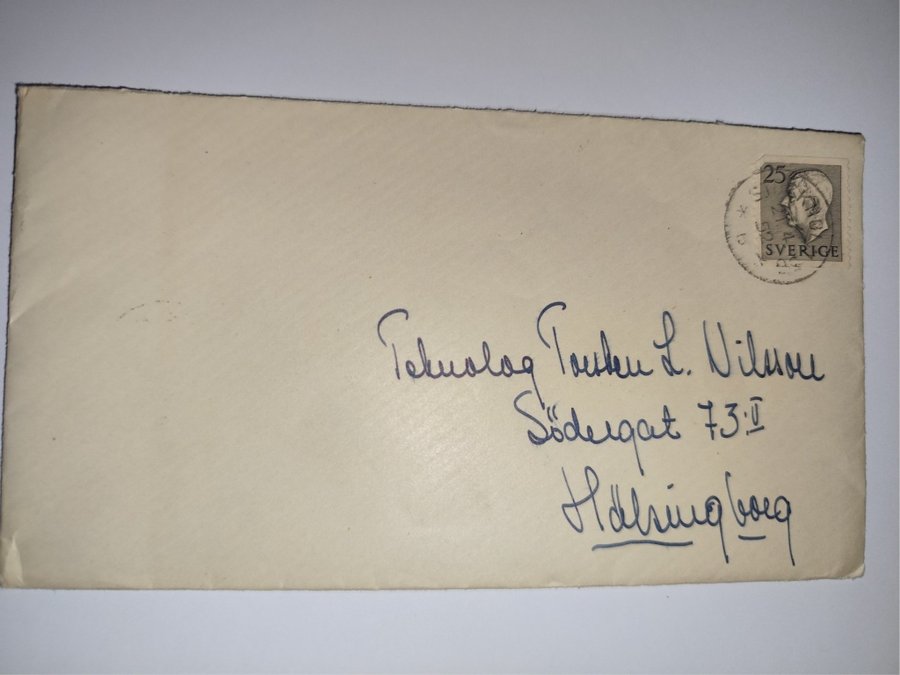 25
SVERIGE
Teknolog Torsten L. Nilsson
Södergat 73.II
Hälsingborg